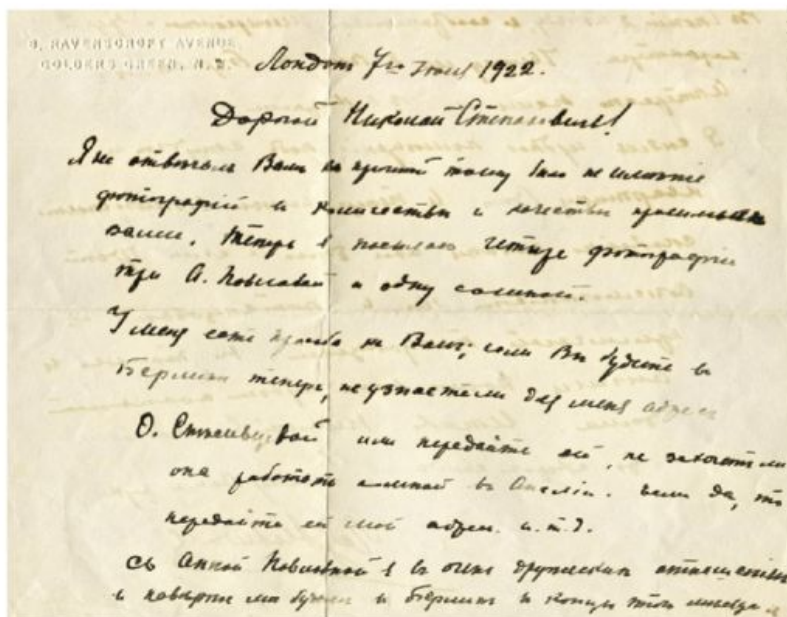 3, RAVENSCROFT AVENUE,
GOLDERS GREEN, N.
Лондонъ 7го 1922.
Дорогой Николай Степановичъ!
Я не отвѣчалъ Вамъ по простой
фотографій в количествѣ и качествѣ
вами. Теперь я посылаю четыре фотографіи
три А. Павловой и одну
У меня есть просьба къ Вамъ; если Вы будете в
Берлинѣ теперь, не узнаете ли для меня адресъ
О. или передайте ей, не захочетъ ли
она работать со мной въ Англіи. Если да, то
передайте ей мой адрес. и.т.д.
Съ Анной Павловной я въ очень дружескихъ отношеніяхъ
и мы будем в Берлинѣ в концѣ этого мѣсяца